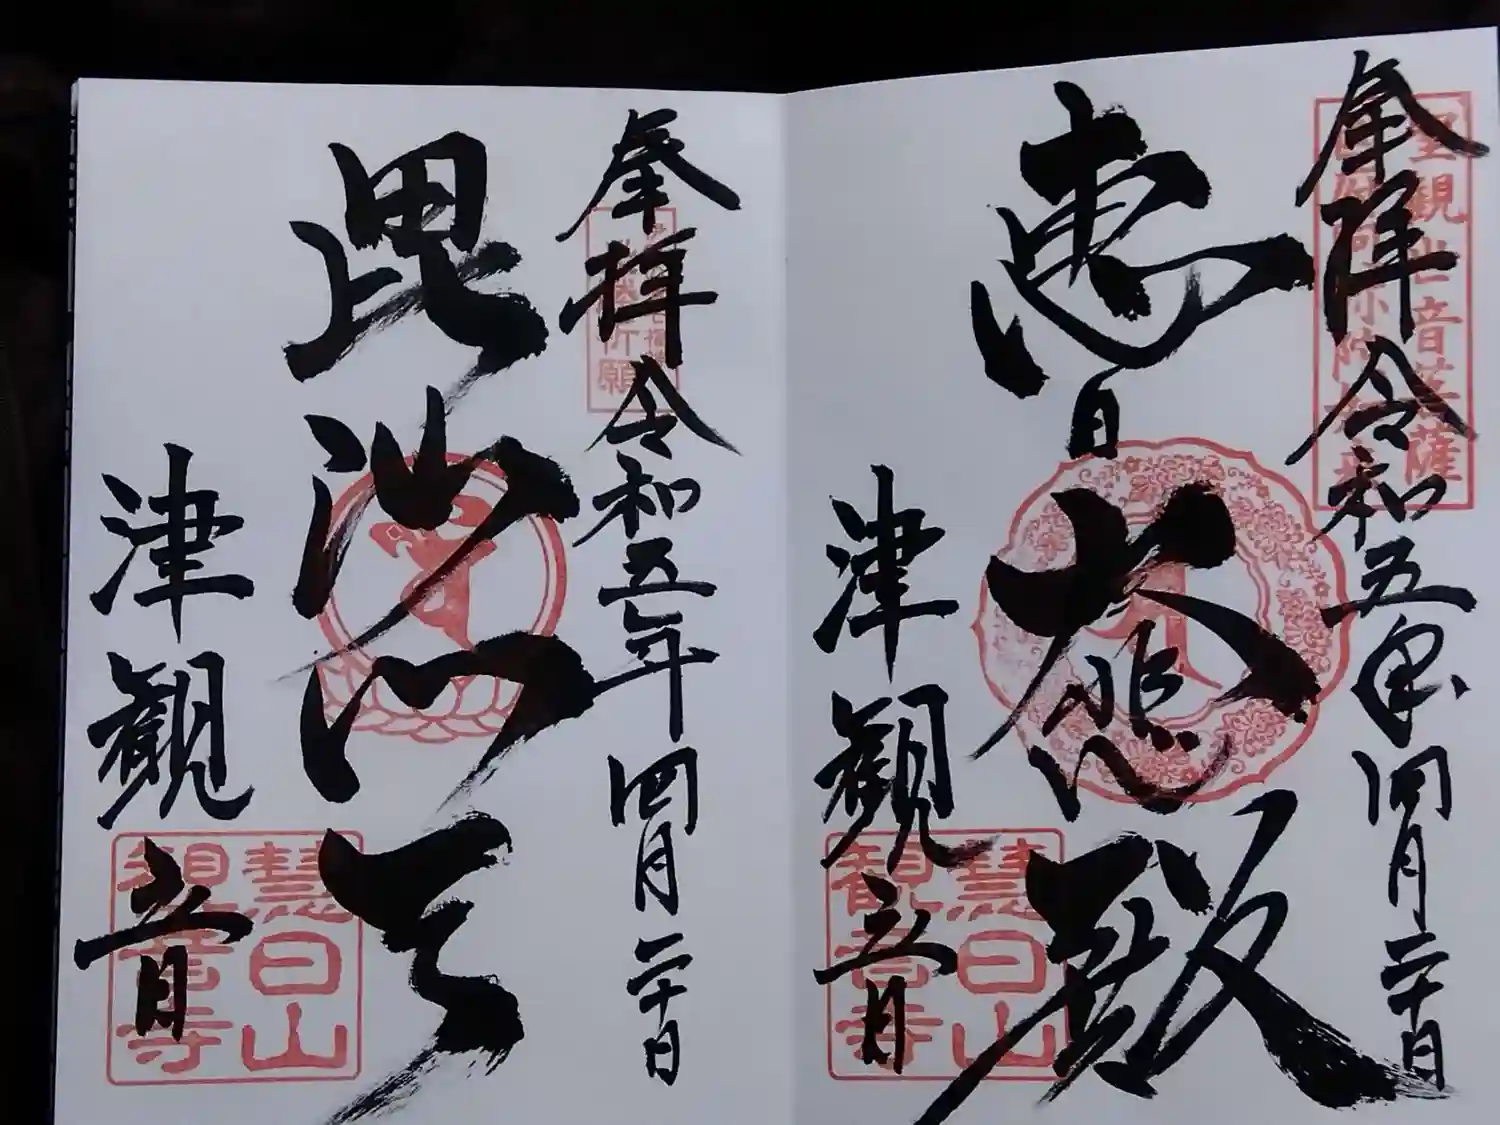 奉拝 令和五年四月二十日
聖観世音菩薩
恵日大悲殿
津観音
慧日山
観音寺
奉拝 令和五年四月二十日
祈願
毘沙門天
津観音
慧日山
観音寺